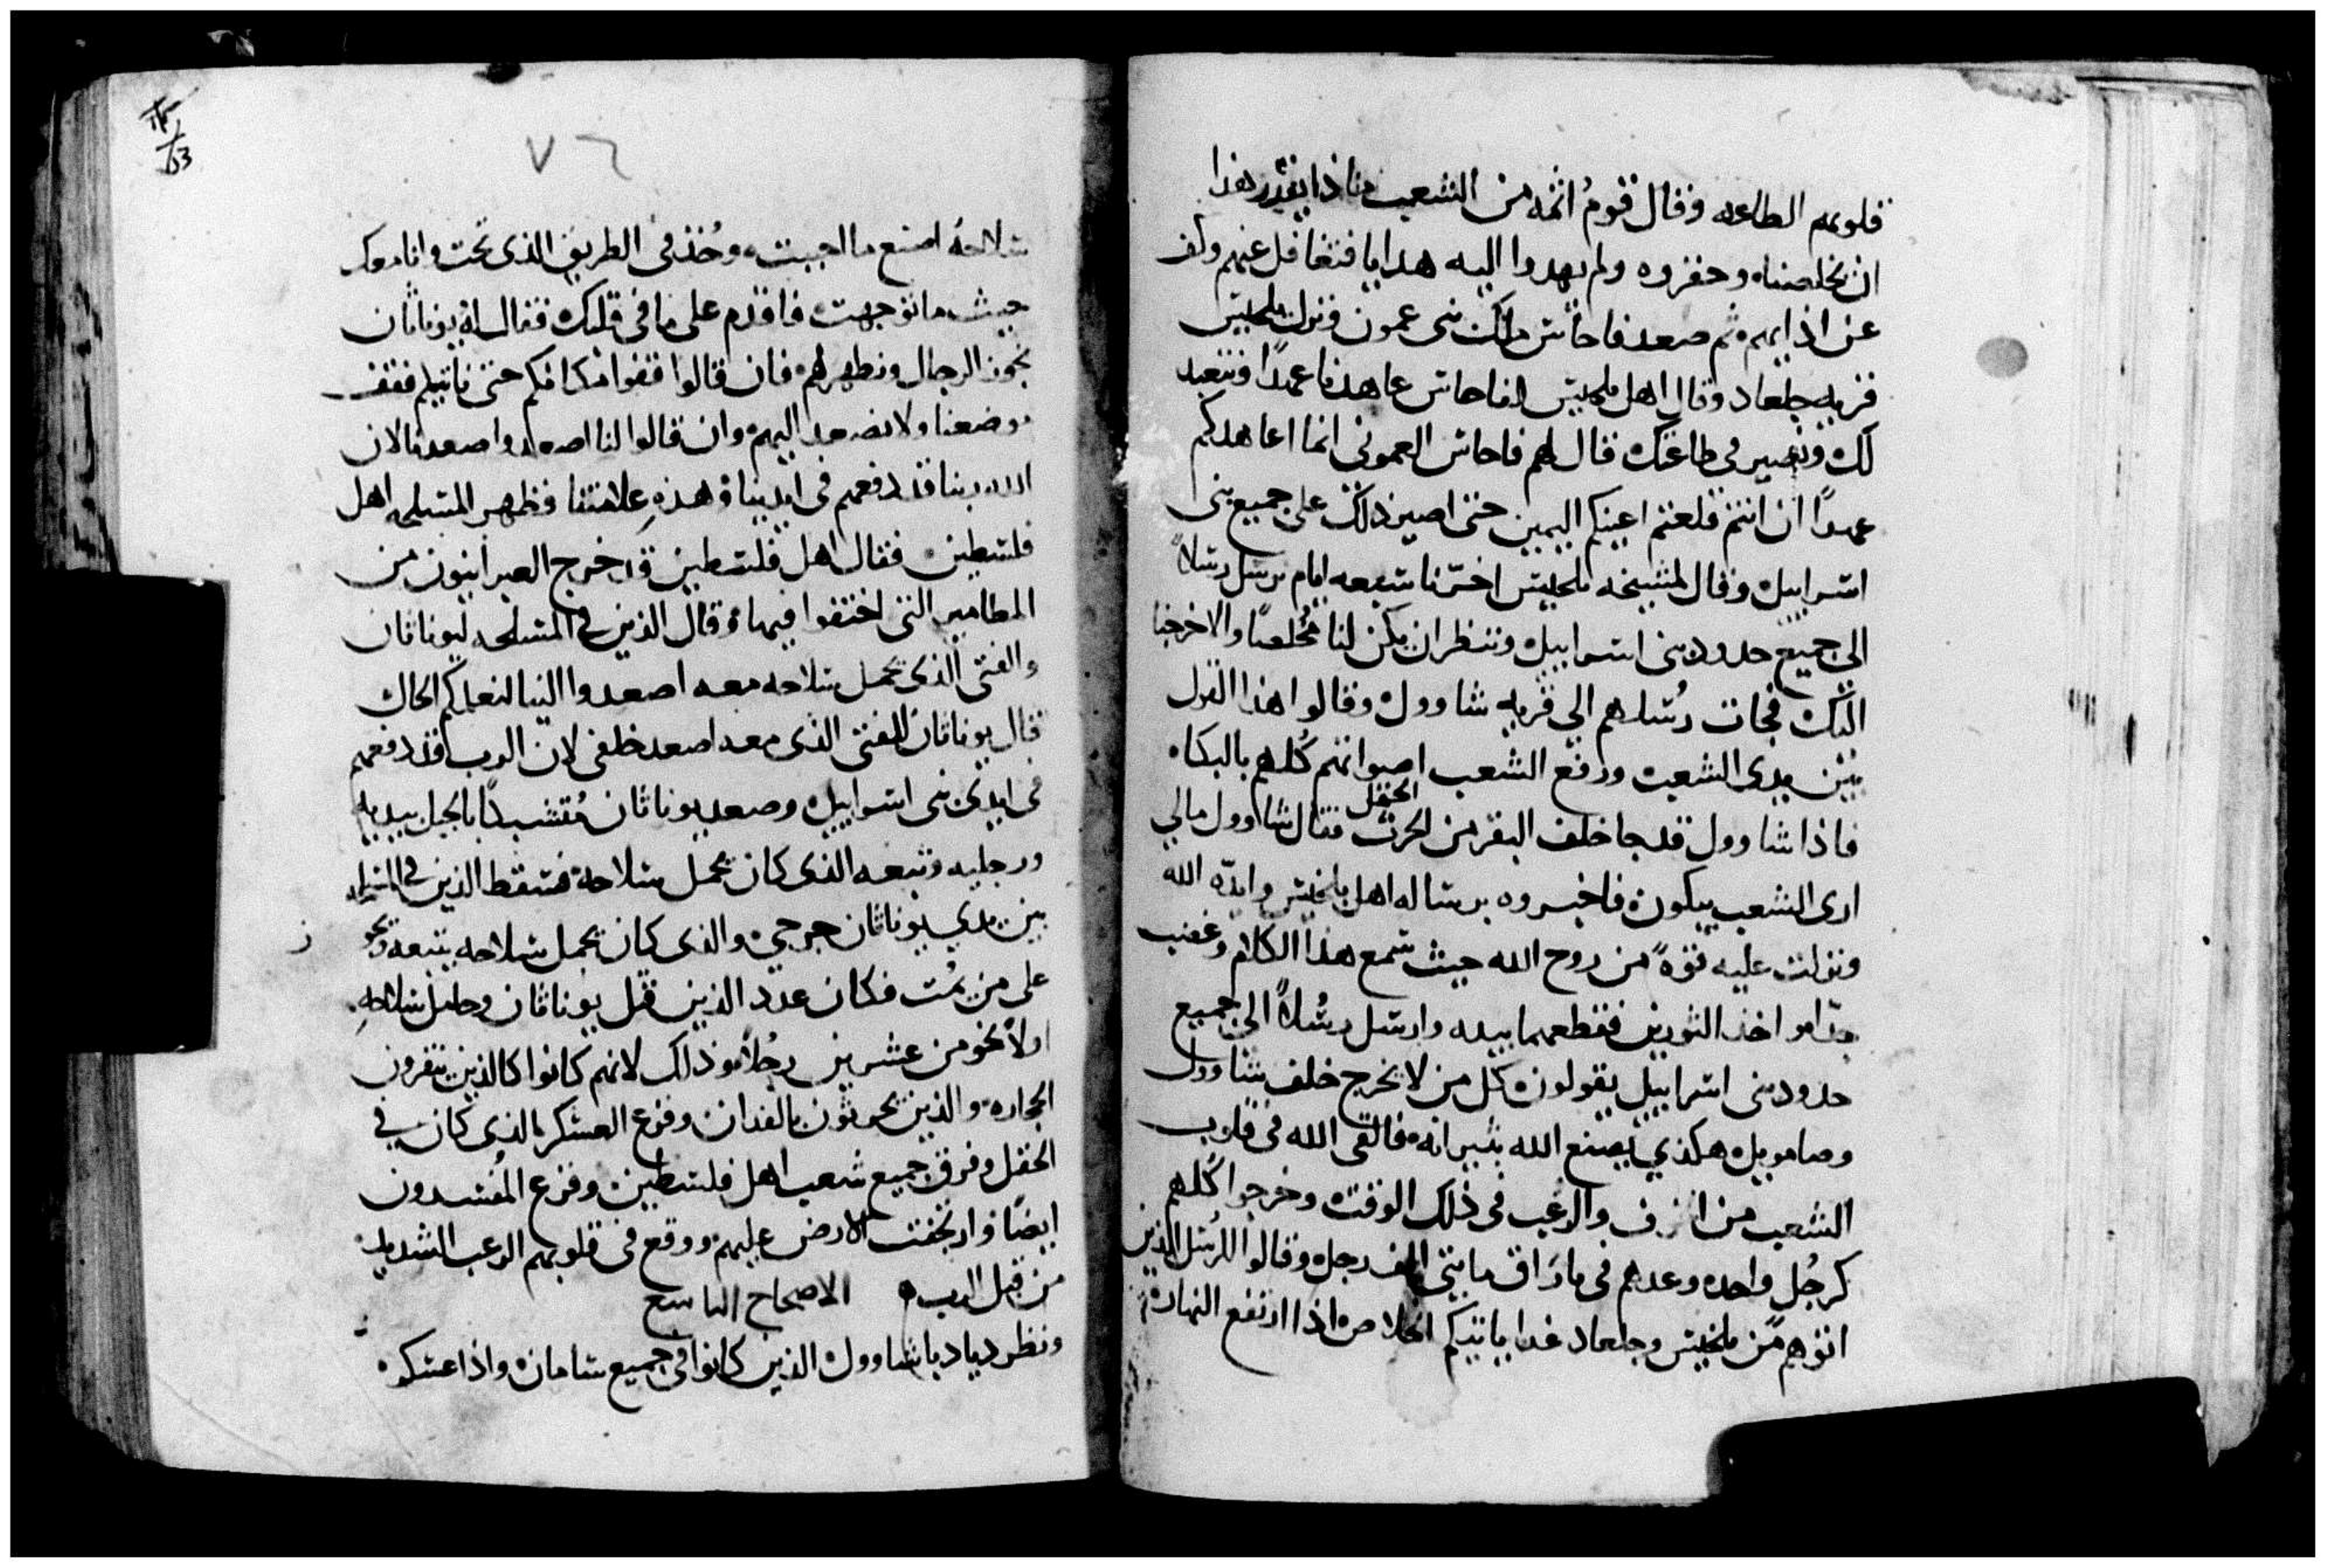 قلوبهم الطاعه وقال قوم اثمه من الشعب ماذا يقدر هذا
ان يخلصنا وحقروه ولم يهدوا اليه هدايا فتغافل عنهم وكف
عن اذايهم ثم صعد ناحاش ملك بنى عمون ونزل
قريه جلعاد وقال اهل لناحاش عاهدنا عهدًا ونتعبد
لك ونصير فى طاعتك قال لهم ناحاش العمونى انما اعاهدكم
عهدًا ان انتم قلعتم اعينكم اليمين حتى اصير ذلك على جميع بنى
اسراييل وقال لمشيخه اخرنا سبعه ايام نرسل رسلاً
الى جميع حدود بنى اسراييل وننظر ان يكن لنا مُخلصًا والا خرجنا
اليك فجات رُسلهم الى قريه شاوول وقالوا هذا القول
بين يدى الشعب ورفع الشعب اصواتهم كُلهم بالبكاء
الحقل
فاذا شاوول قد جا خلف البقر من الحرث فقال شاوول مالي
ارى الشعب يبكون فاخبروه برساله اهل وايده الله
ونزلت عليه قوةً من روح الله حيث سمع هذا الكلام وغضب
جدًا واخذ الثورين فقطعهما بيده وارسل رسُلاً الى جميع
حدود بنى اسراييل يقولون كل من لا يخرج خلف شاوول
وصامويل هكذي يصنع الله بثيرانه فالقى الله فى قلوب
الشعب من والرعب فى ذلك الوقت وخرجوا كُلهم
كرجُل واحد وعدهم فى مايتى الف رجل وقالوا للرُسل الذين
اتوهم من وجلعاد غدا ياتيكم الخلاص اذا ارتفع النهار
٧٦
سلاحهُ اصنع ما احببت وخُذ فى الطريق الذى تحب وانا معك
حيث ما توجهت فاقدم على ما فى قلبك فقال له يوناثان
نجوز الرجال ونظهر لهم فان قالوا قفوا مكانكم حتى ناتيكم فنقف
موضعنا ولا نصعد اليهم وان قالوا لنا اصعدوا صعدنا لان
الله ربنا قد دفعهم فى ايدينا وهذهِ علامتنا فظهر المسلحه اهل
فلسطين فقال اهل فلسطين قد خرج العبرانيون من
المطامير التى اختفوا فيها وقال الذين فى المسلحه ليوناثان
والفتى الذى يحمل سلاحه معه اصعدوا الينا لنعلمكم الحال
قال يوناثان للفتى الذى معه اصعد خلفى لان الرب قد دفعهم
فى ايدى بنى اسراييل وصعد يوناثان مُتشبدًا بالجبل بيديه
ورجليه وتبعه الذى كان يحمل سلاحه فسقط الذين فى
بين يدي يوناثان جرحي والذى كان يحمل سلاحه يتبعه
على من يمُت فكان عدد الذين قتل يوناثان وحامل سلاحهِ
اولاً نحو من عشرين رجُلاً وذلك لانهم كانوا كالذين ينقرون
الحجاره والذين يحرثون بالفدان وفزع العسكر الذى كان فى
الحقل وفرق جميع شعب اهل فلسطين وفزع المُفسدون
ايضًا وارتجفت الارض عليهم ووقع فى قلوبهم الرعب الشديد
من قبل الرب الاصحاح التاسع
ونظر شاوول الذين كانوا فى جميع واذا عسكر